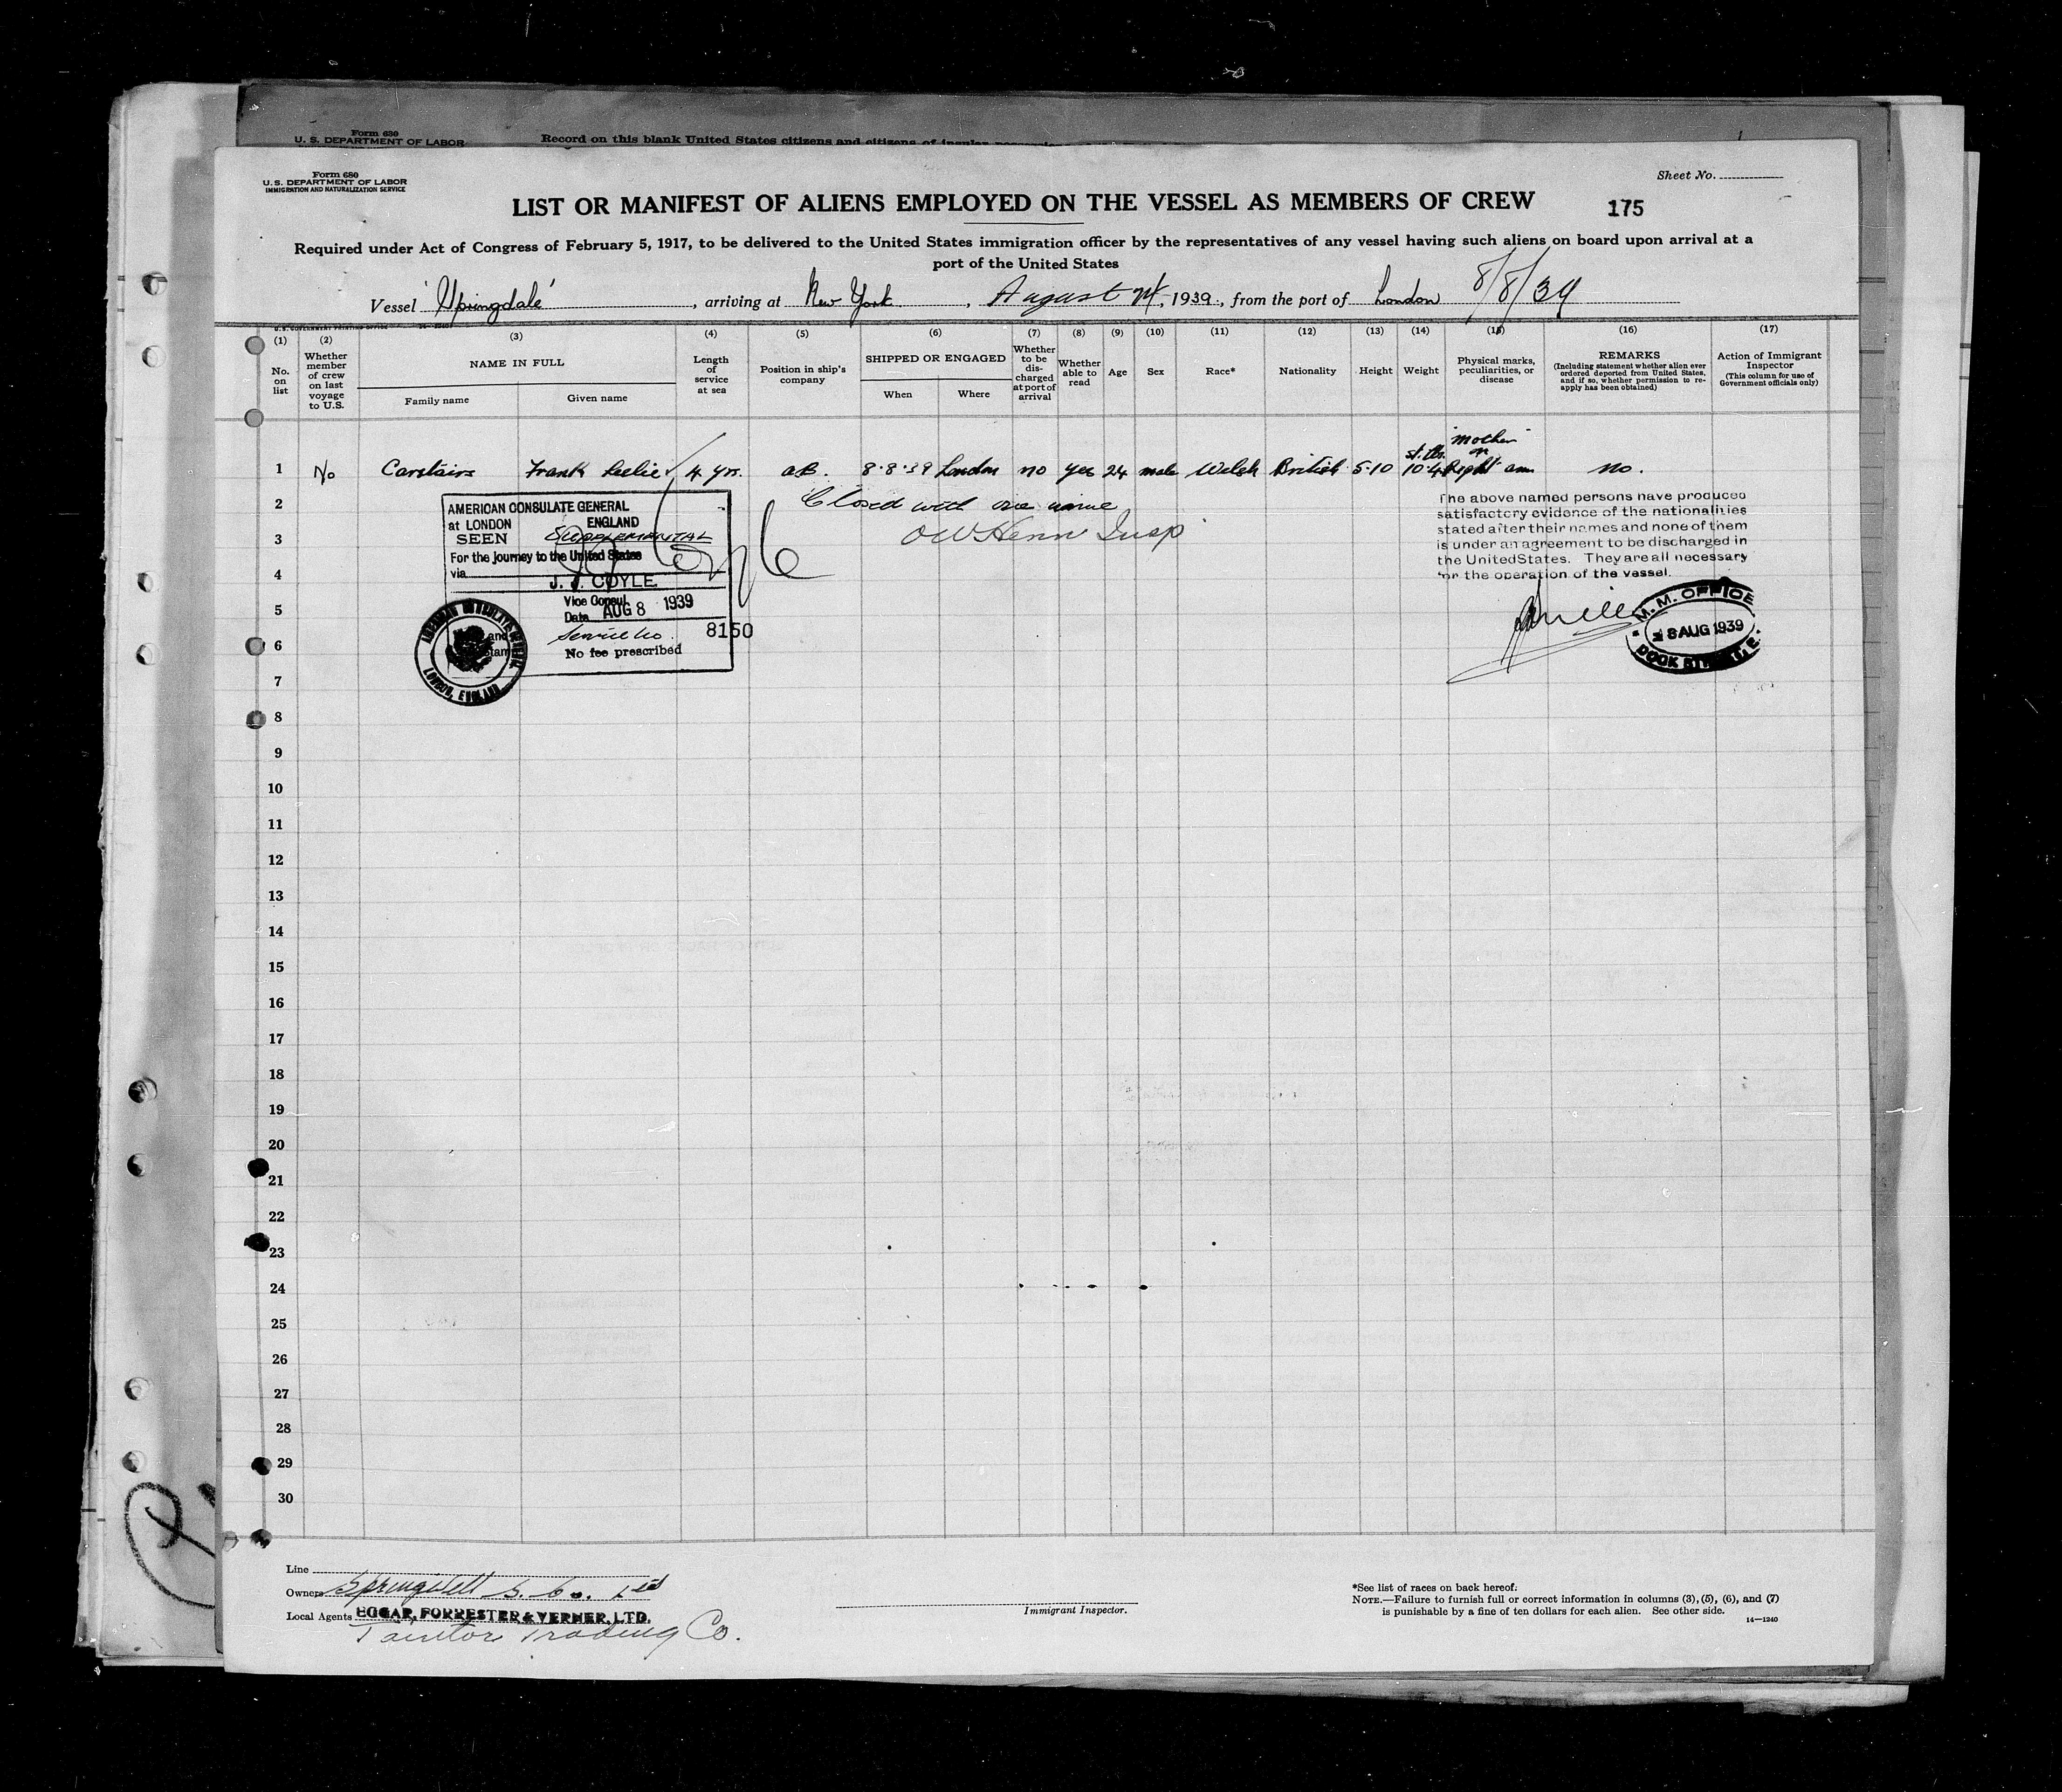 Form 630
U. S. DEPARTMENT OF LABOR
Record on this blank United States citizens and citizens of insular
Form 680
U. S. DEPARTMENT OF LABOR
IMMIGRATION AND NATURALIZATION SERVICE
Sheet No.
LIST OR MANIFEST OF ALIENS EMPLOYED ON THE VESSEL AS MEMBERS OF CREW
175
Required under Act of Congress of February 5, 1917, to be delivered to the United States immigration officer by the representatives of any vessel having such aliens on board upon arrival at a
port of the United States
Vessel 'Springdale', arriving at New York, August 24, 1939, from the port of London 8/8/39
U. S. GOVERNMENT PRINTING OFFICE 14-1240
(1) (2) (3) (4) (5) (6) (7) (8) (9) (10) (11) (12) (13) (14) (15) (16) (17)
No. on list
Whether member of crew on last voyage to U.S.
NAME IN FULL
Family name
Given name
Length of service at sea
Position in ship's company
SHIPPED OR ENGAGED
When
Where
Whether to be discharged at port of arrival
Whether able to read
Age
Sex
Race*
Nationality
Height
Weight
Physical marks, peculiarities, or disease
REMARKS
(Including statement whether alien ever ordered deported from United States, and if so, whether permission to reapply has been obtained)
Action of Immigrant Inspector
(This column for use of Government officials only)
"mother"
st. lbs. on
1 No Carstairs Frank Leslie 4 yrs. a.B. 8.8.39 London no yes 24 male Welsh British 5-10 10.4 Right arm no.
2 Closed with one name
3 Insp
4
5
6
7
8
9
10
11
12
13
14
15
16
17
18
19
20
21
22
23
24
25
26
27
28
29
30
AMERICAN CONSULATE GENERAL
at LONDON ENGLAND
SEEN SUPPLEMENTAL
For the journey to the United States
via
J. J. COYLE
Vice Consul
Date AUG 8 1939
Service No. 8150
No fee prescribed
AMERICAN CONSULATE GENERAL
LONDON, ENGLAND
The above named persons have produced
satisfactory evidence of the nationalities
stated after their names and none of them
is under an agreement to be discharged in
the United States. They are all necessary
for the operation of the vessel.
M. M. OFFICE
8 AUG 1939
DOCK STREET. E.
Line
Owners Springwell S. Co. Ltd
Local Agents EGGAR, FORRESTER & VERNER, LTD.
Taintor Trading Co.
Immigrant Inspector.
*See list of races on back hereof.
NOTE.—Failure to furnish full or correct information in columns (3), (5), (6), and (7)
is punishable by a fine of ten dollars for each alien. See other side.
14—1240